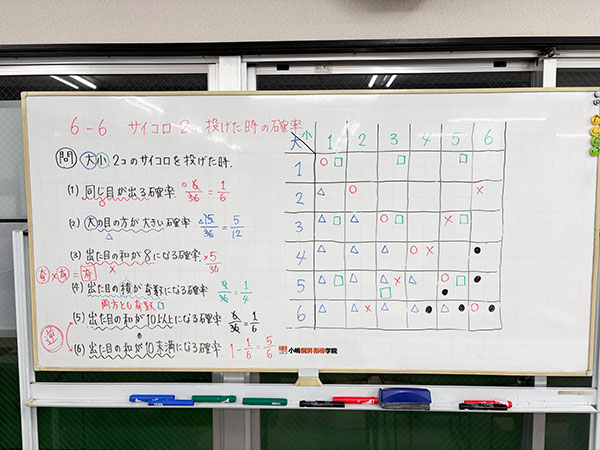 6-6. サイコロ2つ投げた時の確率
問 大小2コのサイコロを投げた時.
(1) 同じ目が出る確率. ○ 6/36 = 1/6
(2) 大の目の方が大きい確率 △ 15/36 = 5/12
△
(3) 出た目の和が8になる確率. × 5/36
×
奇×奇=奇
(4) 出た目の積が奇数になる確率 9/36 = 1/4
両方とも奇数 □
(5) 出た目の和が10以上になる確率 6/36 = 1/6
●
逆
(6) 出た目の和が10未満になる確率. 1 - 1/6 = 5/6
大 小 1 2 3 4 5 6
1 ○ □ □ □
2 △ ○ ×
3 △ □ △ ○ □ × □
4 △ △ △ ○ × ●
5 △ □ △ △ × □ △ ○ □ ● ●
6 △ △ × △ △ ● △ ● ○ ●
小嶋個別指導学院